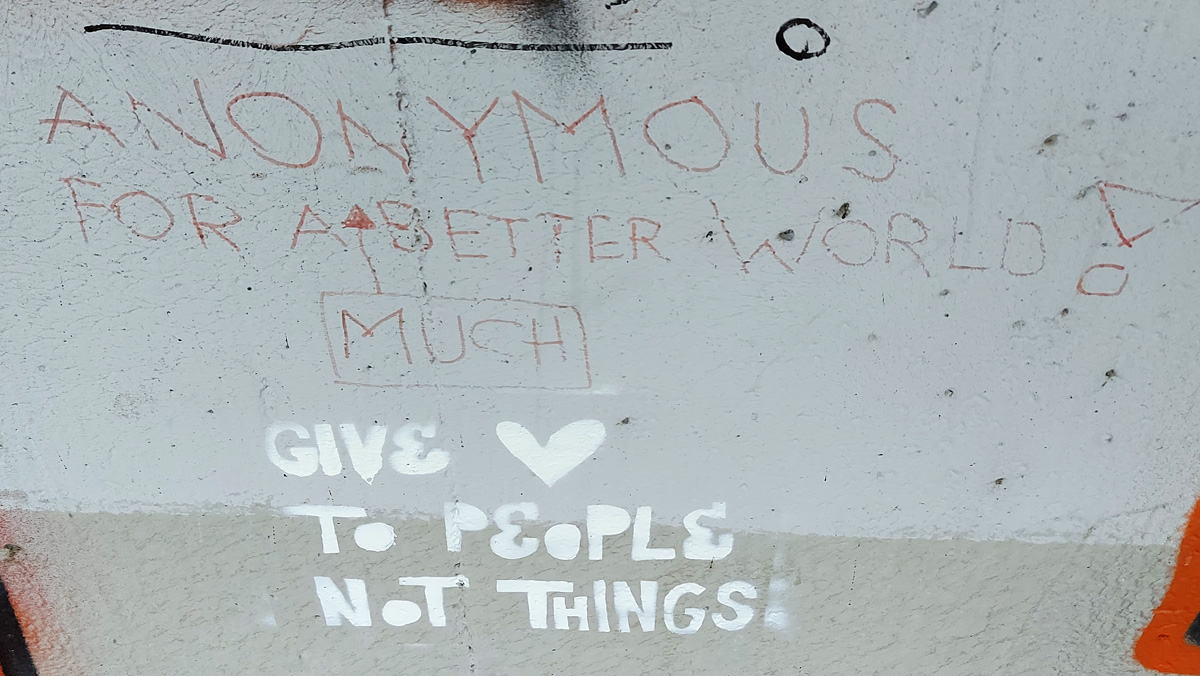 ANONYMOUS
FOR A BETTER WORLD!
MUCH
GIVE ♥
TO PEOPLE
NOT THINGS